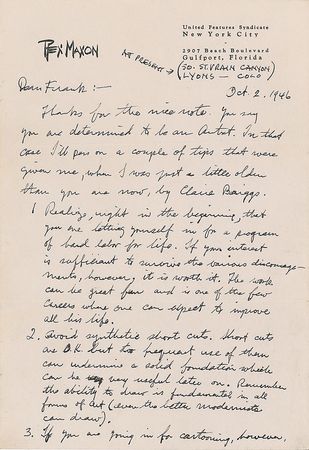 United Features Syndicate
New York City
REX MAXON
2907 Beach Boulevard
Gulfport, Florida
AT PRESENT →
(SO. ST. VRAIN CANYON)
LYONS — COLO
Oct. 2. 1946
Dear Frank:—
Thanks for the nice note. You say
you are determined to be an Artist. In that
case I'll pass on a couple of tips that were
given me, when I was just a little older
than you are now, by Clare Briggs.
1 Realize, right in the beginning, that
you are letting yourself in for a program
of hard labor for life. If your interest
is sufficient to survive the various discourage-
ments, however, it is worth it. The work
can be great fun and is one of the few
careers where one can expect to improve
all his life.
2. Avoid synthetic short cuts. Short cuts
are O.K. but too frequent use of them
can undermine a solid foundation which
can be very useful later on. Remember
the ability to draw is fundamental in all
forms of Art (even the better modernists
can draw).
3. If you are going in for cartooning, however,